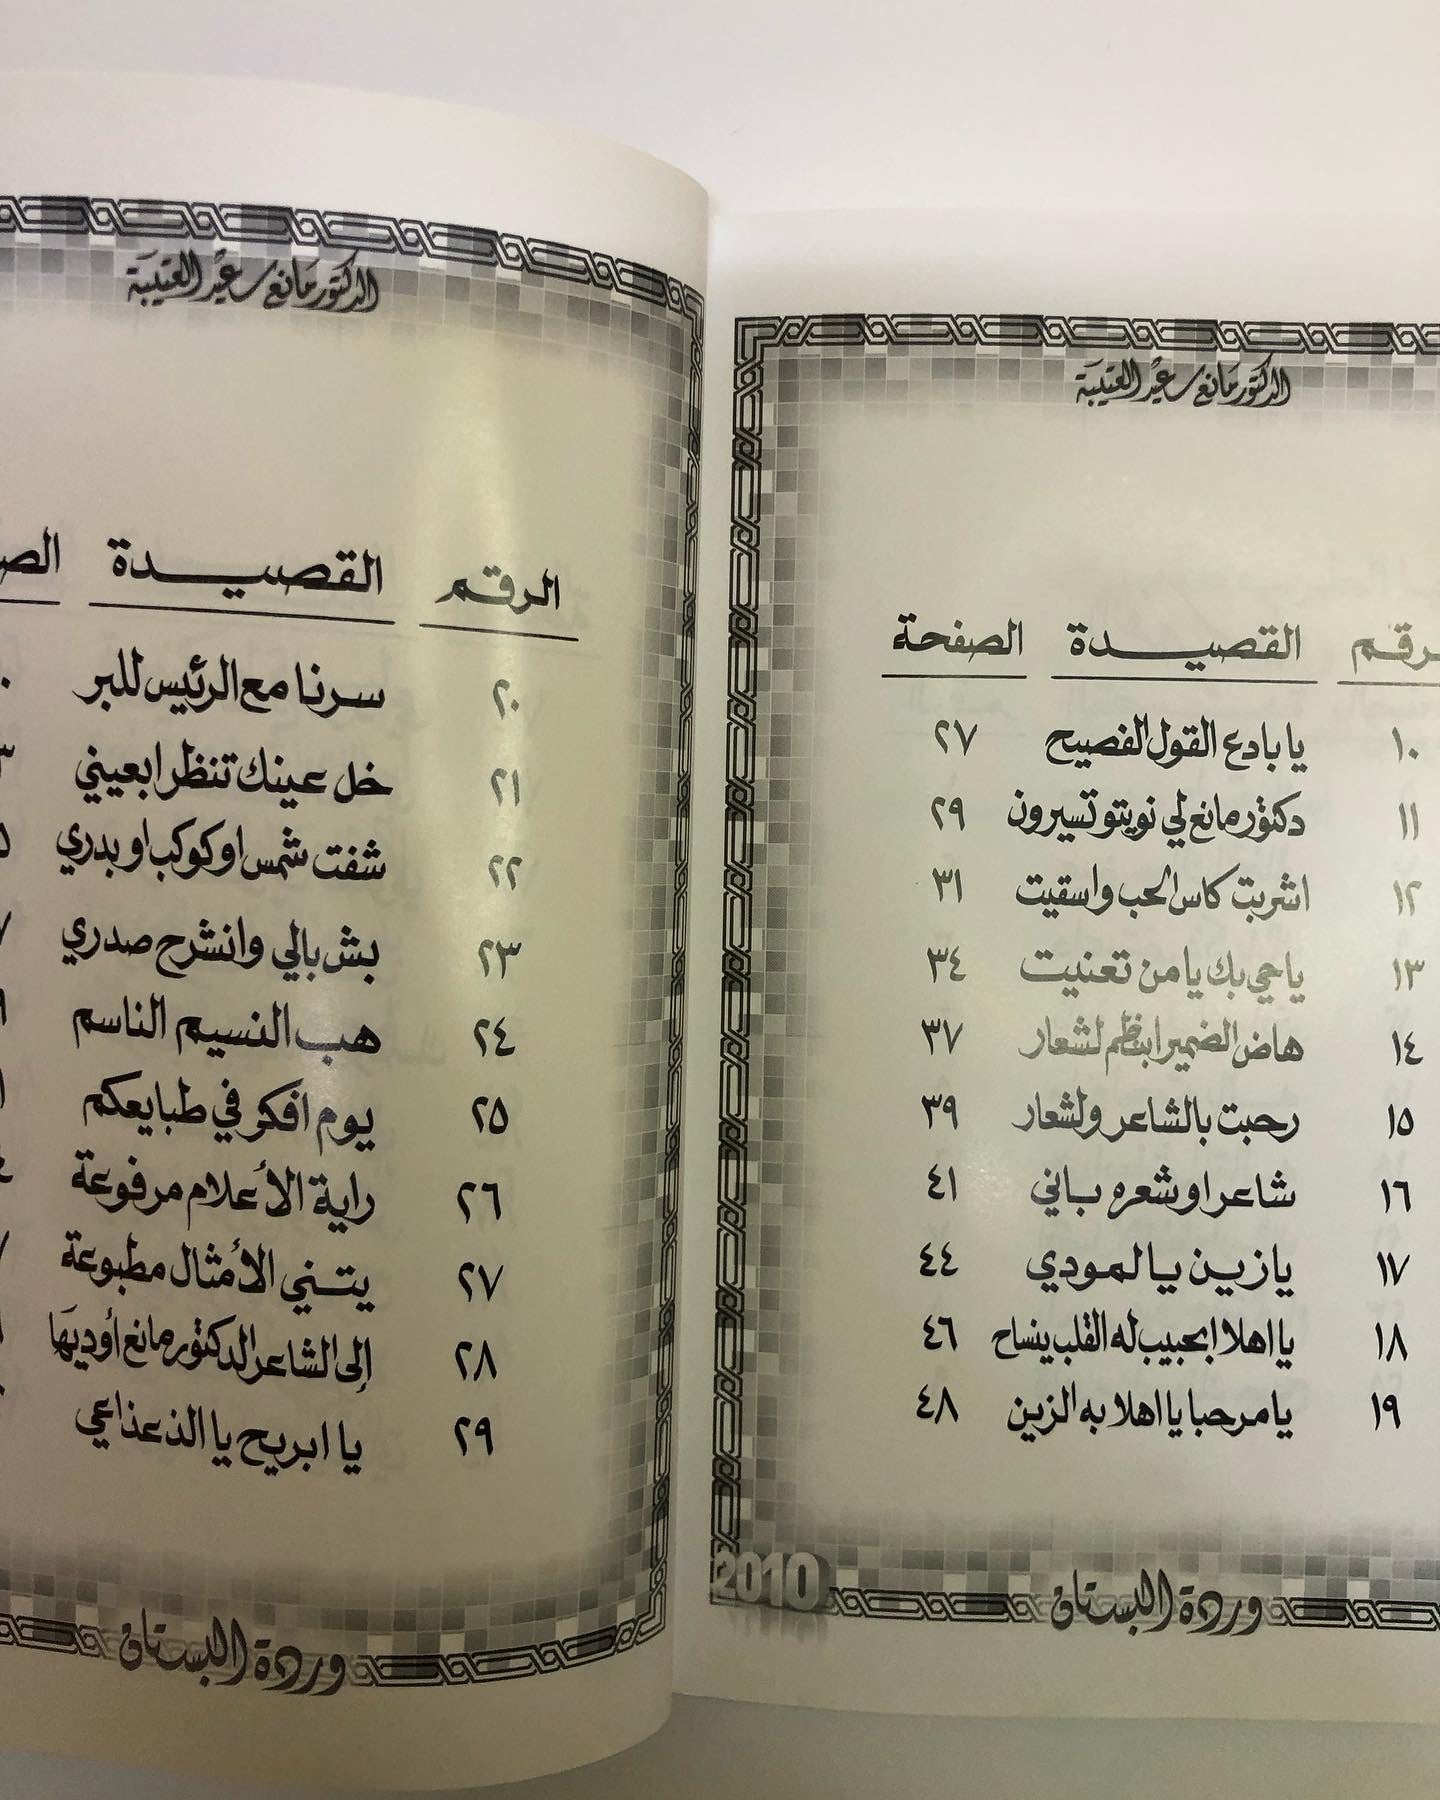 الدكتور مانع سعيد العتيبة
القصيدة الصفحة
١٠ يا بادع القول الفصيح ٢٧
١١ دكتور مانع لي نويتو تسيرون ٢٩
١٢ اشربت كاس الحب واسقيت ٣١
١٣ ياحي بك يا من تعنيت ٣٤
١٤ هاض الضمير ابنظم لشعار ٣٧
١٥ رحبت بالشاعر ولشعار ٣٩
١٦ شاعر او شعره باني ٤١
١٧ يا زين يا لمودي ٤٤
١٨ يا اهلا ابحبيب له القلب ينساح ٤٦
١٩ يا مرحبا يا اهلا به الزين ٤٨
2010
وردة البستان
الدكتور مانع سعيد العتيبة
الرقم القصيدة
٢٠ سرنا مع الرئيس للبر
٢١ خل عينك تنظر ابعيني
٢٢ شفت شمس او كوكب او بدري
٢٣ بش بالي وانشرح صدري
٢٤ هب النسيم الناسم
٢٥ يوم افكر في طبايعكم
٢٦ راية الأعلام مرفوعة
٢٧ يتني الأمثال مطبوعة
٢٨ إلى الشاعر الدكتور مانع أوديها
٢٩ يا ابريح يا الذعذاعي
وردة البستان